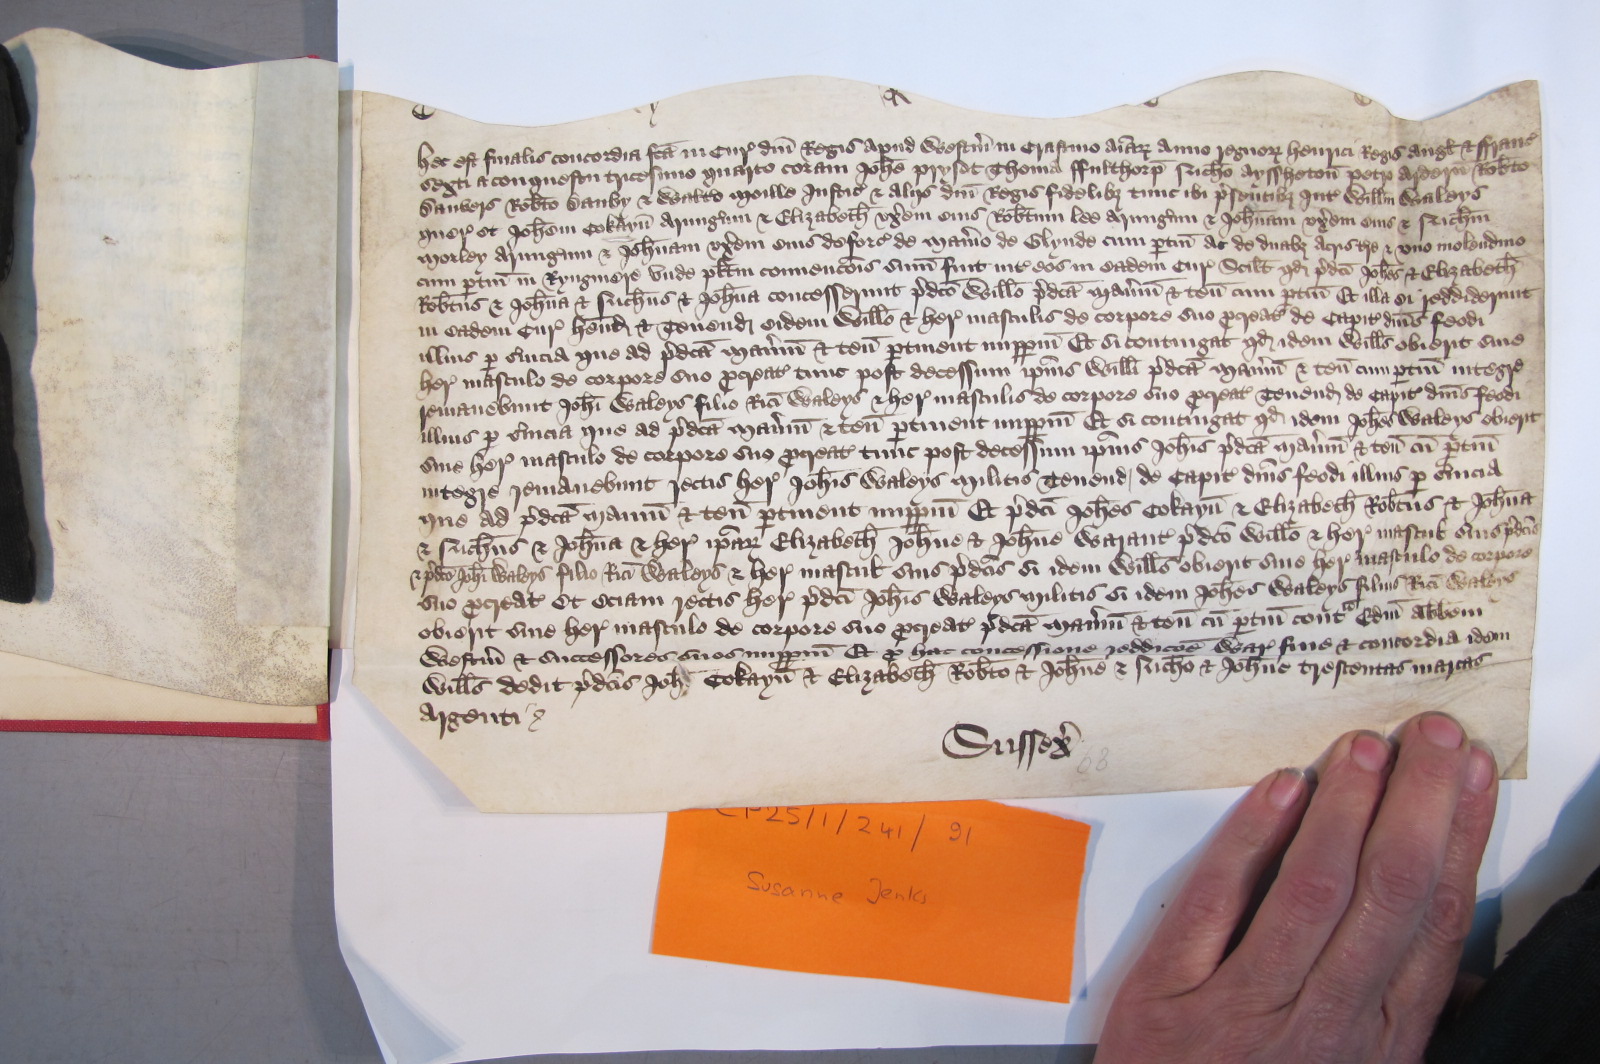 Hec est finalis concordia fcā in Cur̉ dn̄i Regis Apud Westm̄ in Crastino Aīar̨ Anno regnor̨ Henrici Regis Angl̄ & ffranc̄
sexti a conquestu tricesimo quarto coram Joh̄e Prysot Thoma ffulthorp̄ Ric̄ho Aysshetoun̄ Petro Ardern̄ Rob̄to
Danvers Rob̄to Danby & Walt̄o Moille Justic̄ & Alijs dn̄i Regis fidelibȝ tunc ibi p̄sentibȝ Int̄ Will̄m Waleys
quer̉ et Joh̄em Cokayn̄ Armigm̄ & Elizabeth̄ vx̄em eius Rob̄tum lee Armigm̄ & Joh̄nam vx̄em eius & Ric̄hm
Morley Armigm̄ & Joh̄nam vx̄em eius deforc̄ de Man̄io de Glynde cum ptin̄ Ac de duabȝ Acris t̄re & vno molendino
cum ptin̄ in Ryngmere Vnde pl̄itm conuenc̄ois sum̄ fuit int̄ eos in eadem Cur̉ Scilt̄ qd̨ p̄dc̄i Joh̄es & Elizabeth̄
Rob̄tus & Joh̄na & Ric̄hus & Joh̄na concesserunt p̄dc̄o Will̄o p̄dc̄a Man̄ium & ten̄ cum ptin̄ Et illa ei reddiderunt
in eadem Cur̉ Hend̨ & Tenend̨ eidem Will̄o & her̉ masculis de corpore suo p̱creat̄ de Capit̄ dn̄is feodi
illius p̱ seruicia que ad p̄dc̄a Man̄ium & ten̄ ptinent imppm̄ Et si contingat qd̨ idem Will̄s obierit sine
her̉ masculo de corpore suo p̱creat̄ tunc post decessum ip̄ius Will̄i p̄dc̄a Man̄ium & ten̄ cum ptin̄ integre
remanebunt Joh̄i Waleys filio Ric̄i Waleys & her̉ masculis de corpore suo p̱creat̄ Tenend̨ de Capit̄ dn̄is feodi
illius p̱ seruicia que ad p̄dc̄a Man̄ium & ten̄ ptinent imppm̄ Et si contingat qd̨ idem Joh̄es Waleys obierit
sine her̉ masculo de corpore suo p̱creat̄ tunc post decessum ip̄ius Joh̄is p̄dc̄a Man̄ium & ten̄ cū ptin̄
integre remanebunt rectis her̉ Joh̄is Waleys Militis Tenend̨ de Capit̄ dn̄is feodi illius p̱ seruicia
que ad p̄dc̄a Man̄ium & ten̄ ptinent imppm̄ Et p̄dc̄i Joh̄es Cokayn̄ & Elizabeth̄ Rob̄tus & Joh̄na
& Ric̄hus & Joh̄na & her̉ ip̄ar̨ Elizabeth̄ Joh̄ne & Joh̄ne Warant̄ p̄dc̄o Will̄o & her̉ mascul̄ suis p̄dc̄is
& p̄dc̄o Joh̄i Waleys filio Ric̄i Waleys & her̉ mascul̄ suis p̄dc̄is si idem Will̄s obierit sine her̉ masculo de corpore
suo p̱creat̄ et eciam rectis her̉ p̄dc̄i Joh̄is Waleys Militis si idem Joh̄es Waleys filius Ric̄i Waleys
obierit sine her̉ masculo de corpore suo p̱creat̄ p̄dc̄a Man̄ium & ten̄ cū ptin̄ cont̄ Edm̄ Abbem
Westm̄ & successores suos imppm̄ Et p̱ hac concessione reddic̄oe War̉ fine & concordia idem
Will̄s dedit p̄dc̄is Joh̄i Cokayn̄ & Elizabeth̄ Rob̄to & Joh̄ne & Ric̄ho & Joh̄ne trescentas marcas
Argenti
Sussex̄
68
CP25/1/241/91
Susanne Jenks